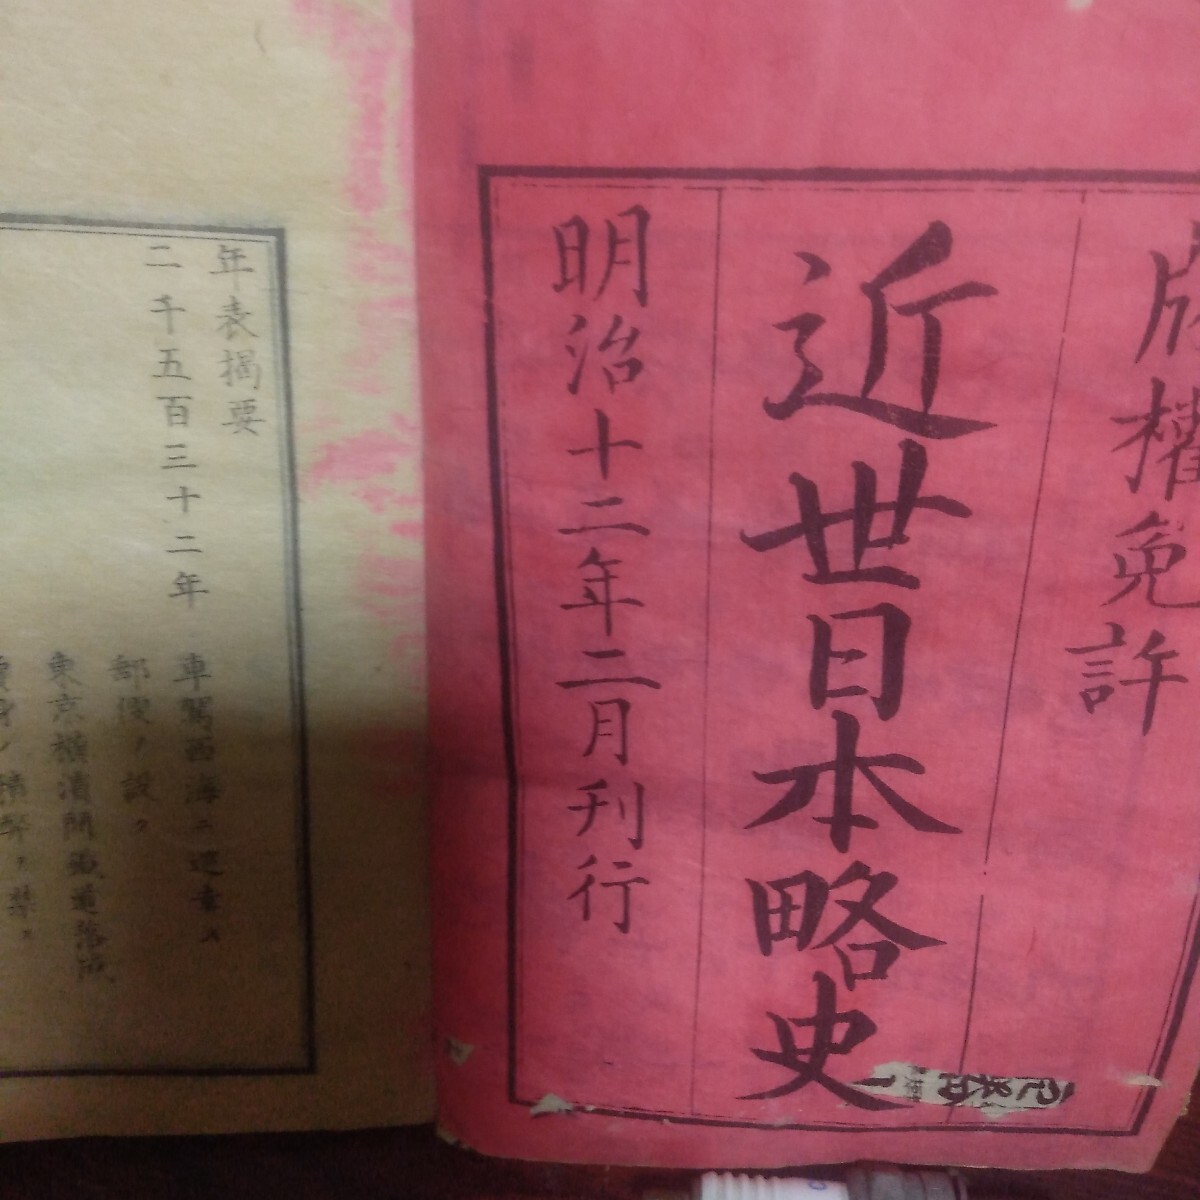 版權免許
近世日本略史
明治十二年二月刊行
年表揭要
二千五百三十二年
車駕西海ニ還幸ス
郵便ノ設ケ
東京橫濱間鐵道落成